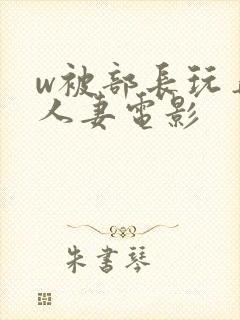 w被部長玩
人妻電影
朱書琴